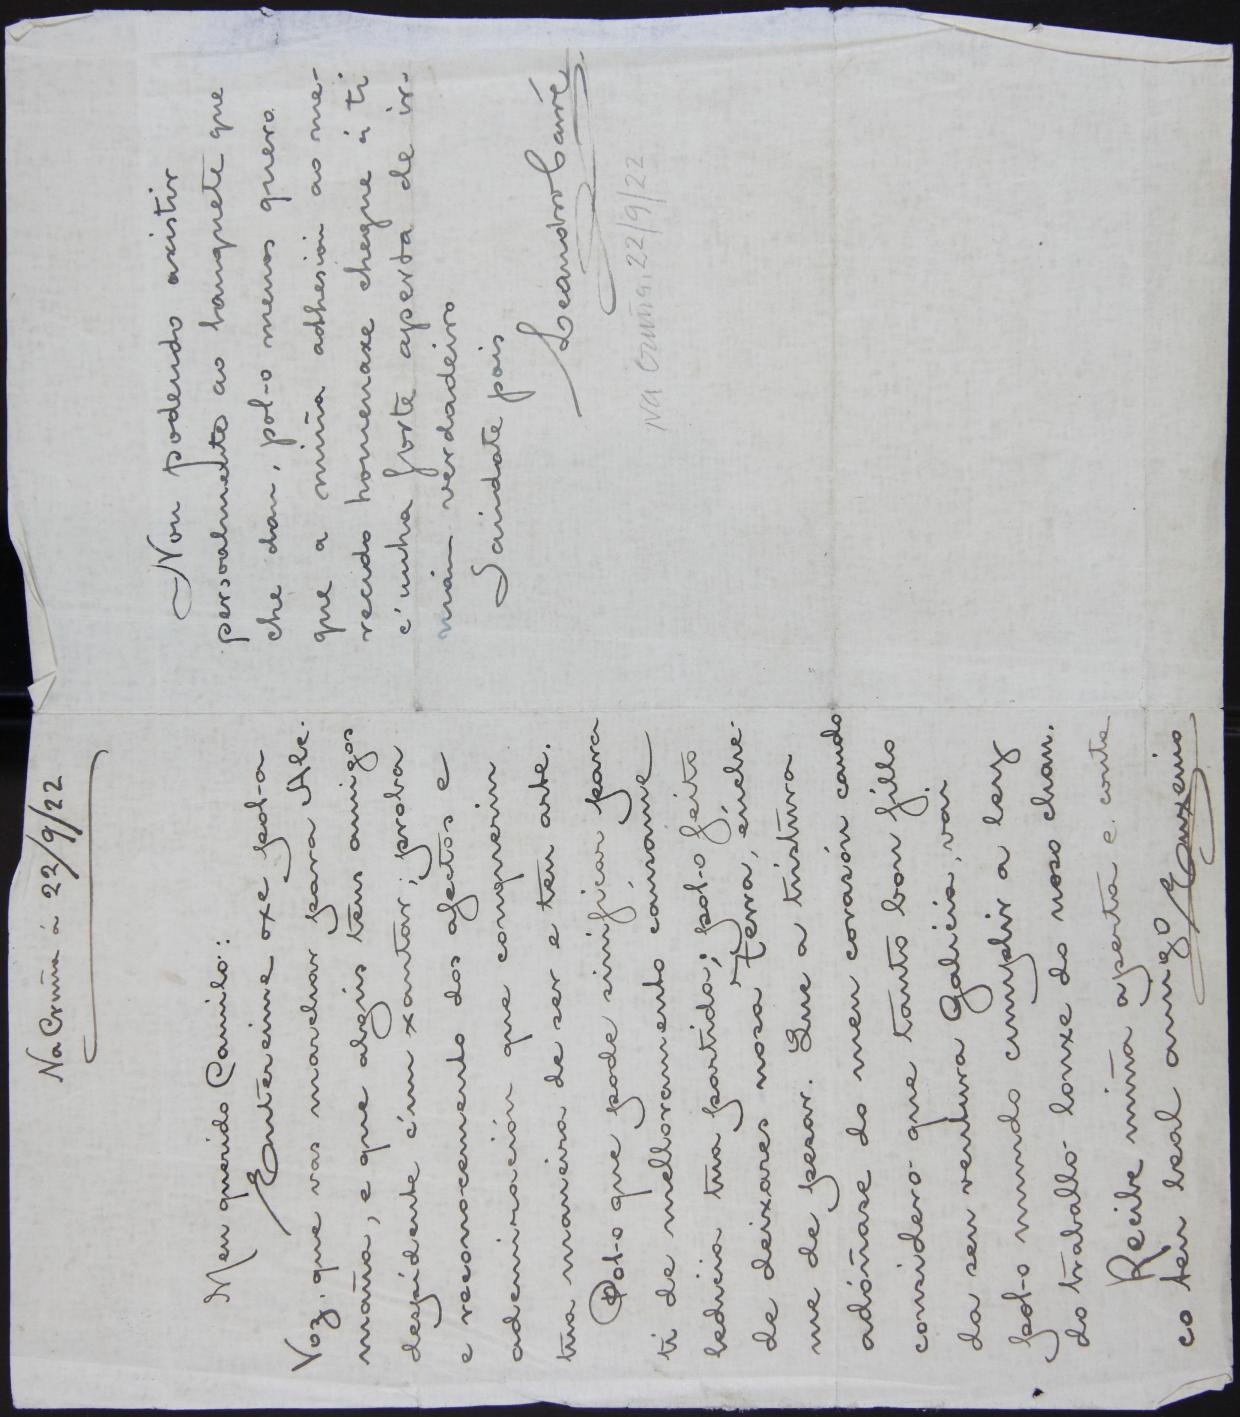 Na Cruña á 22/9/22
Meu querido Camilo:
Entereime oxe pol-a
Voz, que vas marchar para Ale-
maña, e que algús teus amigos
despídente c'un xantar; proba
e reconocemento dos afectos e
ademiración que conquerín
tua maneira de ser e teu arte.
Pol-o que pode sinificar para
ti de melloramento causame
ledicia tua partida; pol-o feito
de deixares nosa terra, énche-
me de pesar. Que a tristura
adóñase do meu corasón cando
considero que tanto bon fillo
da sen ventura Galicia, van
pol-o mundo cumplir a ley
do traballo lonxe do noso chan.
Recibe miña aperta e conta
co teu leal amigo Euxenio
Non podendo asistir
persoalmente ao banquete que
che dan, pol-o menos quero
que a miña adhesión ao me-
recido homenaxe chegue á ti
c'unha forte aperta de ir-
mán verdadeiro
Saúdate pois
Leandro Carré
Na Cruña, 22/9/22